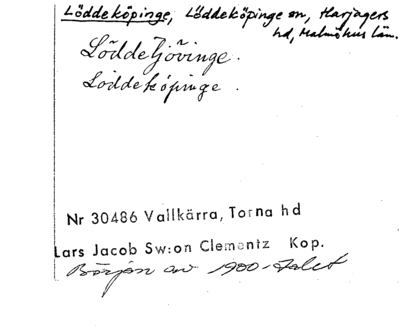 Löddeköpinge, Löddeköpinge sn, Harjagers
hd, Malmöhus län.
Löddetjövinge.
Löddeköpinge.
Nr 30486 Vallkärra, Torna hd
Lars Jacob Sw:on Clementz Kop.
Början av 1900-talet